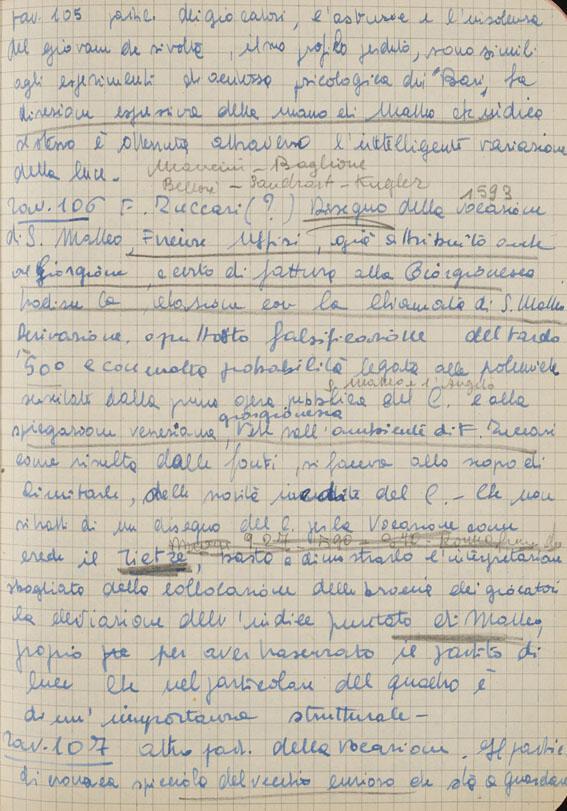 tav. 105 partic. dei giocatori, l'astuzia e l'insolenza
del giovane de rivolta, il suo profilo perduto, sono simili
agli esperimenti di acutezza psicologica dei "Bari", la
direzione espressiva della mano di Matteo che indica
se stesso è ottenuta attraverso l'intelligente variazione
della luce.-
Mancini - Baglione
Bellori - Sandrart - Kugler
1593
Tav. 106 F. Zuccari (?) Disegno della vocazione
di S. Matteo, Firenze Uffizi, già attribuito anche
al Giorgione, e certo di fattura alla Giorgionesca
la relazione con la Chiamata di S. Matteo.
Derivazione, o piuttosto falsificazione del tardo
'500 e con molta probabilità legata alle polemiche
S. Matteo e l'Angelo
suscitate dalla prima opera pubblica del C. e alla
giorgionesca
spiegazione veneziana, che nell'ambiente di F. Zuccari
come risulta dalle fonti, si faceva allo scopo di
limitarle, delle novità inedite del C. - Che non
si tratti di un disegno del C. per la Vocazione come
crede il Tietze, basta a dimostrarlo l'interpretazione
sbagliata della collocazione delle braccia dei giocatori
la deviazione dell'indice puntato di Matteo,
proprio per aver trascurato il partito di
luce che nel particolare del quadro è
di un'importanza strutturale -
Tav. 107 altro part. della vocazione. Il partic.
di cronaca spicciola del vecchio curioso che sta a guardare